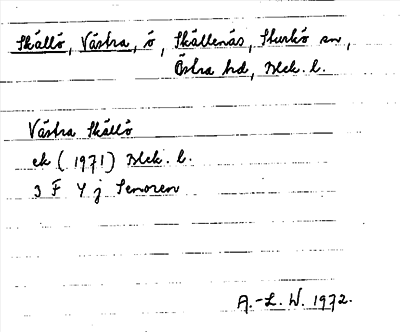 Skällö, Västra, ö, Skällenäs, Sturkö sn,
Östra hd, Blek. l.
Västra Skällö
ek (1971) Blek. l.
3 F 4 j Senoren
A.-L. W. 1972.